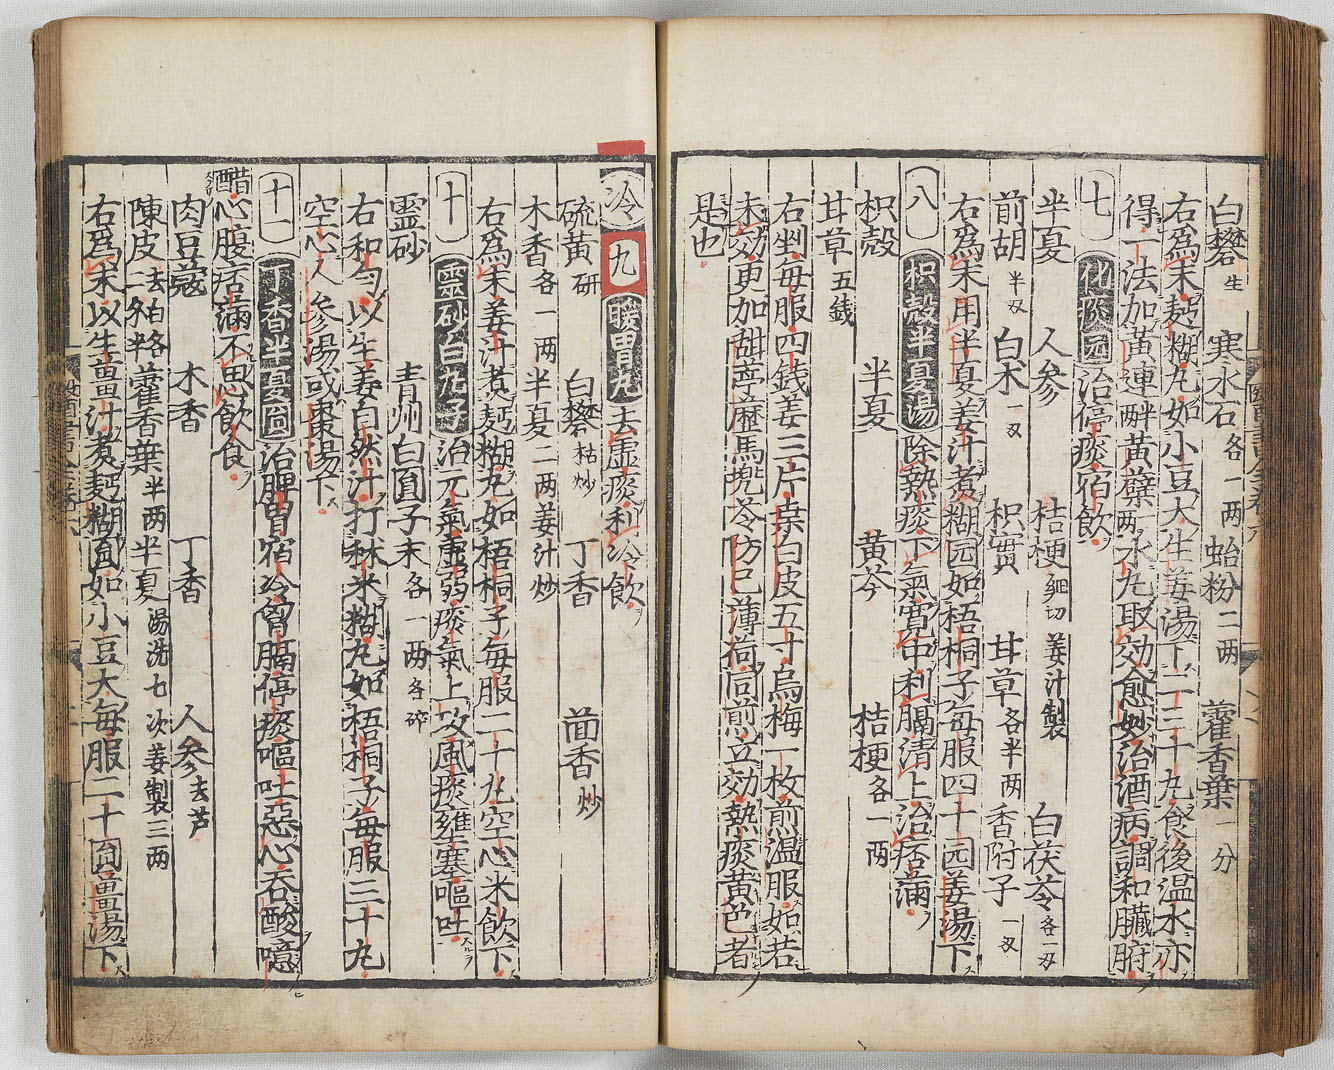 白礬生　寒水石各一两　蛤粉二两　藿香葉一分
右爲末麪糊丸如小豆大生姜湯下二三十丸食後温水亦
得一法加黄連
七　化痰圓　治停痰宿飲
半夏　人參　桔梗細切姜汁製　白茯苓各一刄
前胡半刄　白术一刄　枳實　甘草各半两　香附子一刄
右爲末用半夏姜汁煮糊园如梧桐子每服四十园姜湯下
八　枳殼半夏湯　除熱痰下氣寬中利膈清上治痞滿
枳殼　半夏　黄芩　桔梗各一两
甘草五銭
右剉每服四銭姜三片桒白皮五寸烏梅一枚煎温服如若
未効更加甜葶藶馬兜苓防己薄荷同煎立効熱痰黄色者
是也
冷　九　暖胃丸　去虛痰利冷飲
硫黄研　白礬枯炒　丁香　茴香炒
木香各一两　半夏二两姜汁炒
右爲末姜汁煮麪糊丸如梧桐子每服二十丸空心米飲下
十　靈砂白丸子　治元氣虛弱痰氣上攻風痰壅塞嘔吐
靈砂　青州白圓子末各一两各碎
右和勻以生姜自然汁打秫米糊丸如梧桐子每服三十丸
空心人參湯或棗湯下
十一　丁香半夏圓　治脾胃宿冷胷膈停痰嘔吐惡心吞酸噫
醋心腹痞滿不思飲食
肉豆蔻　木香　丁香　人參去芦
陳皮去白　藿香葉半两　半夏湯洗七次姜製三两
右爲末以生薑汁煮麪糊圓如小豆大每服二十圓薑湯下